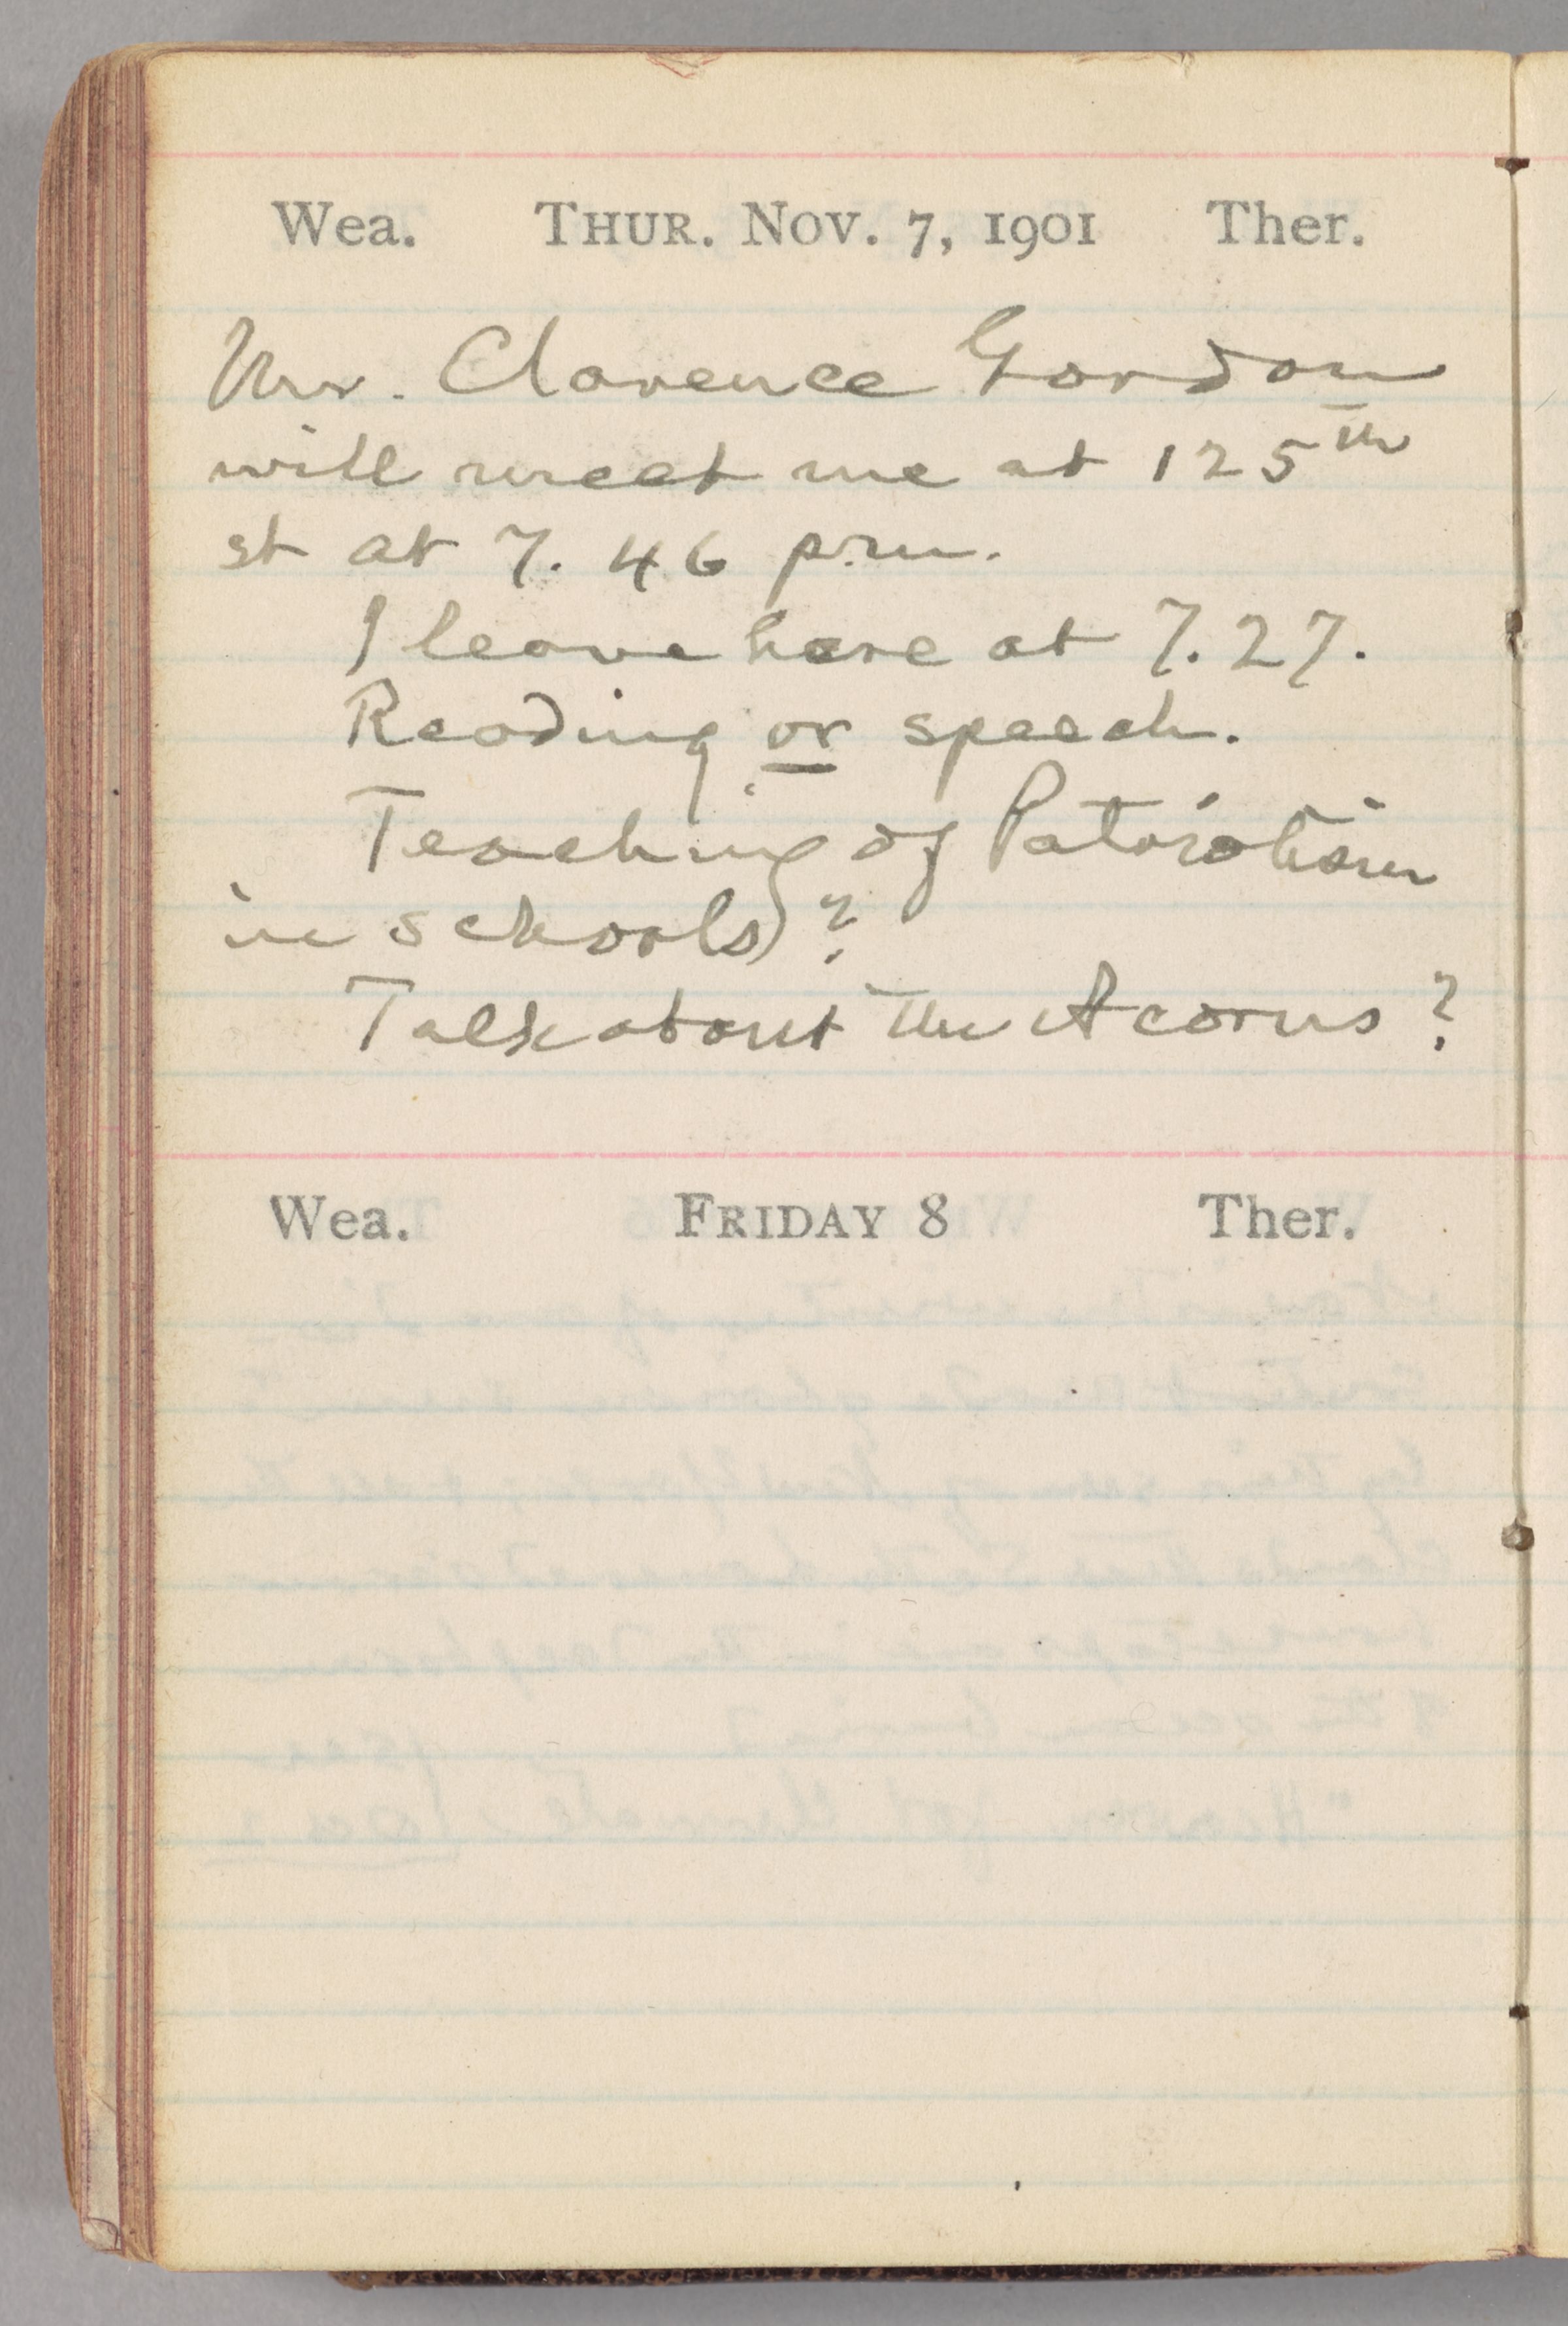 Wea. THUR. NOV. 7, 1901 Ther.
Mr. Clarence Gordon
will meet me at 125th
st at 7.46 p.m.
I leave here at 7.27.
Reading or speech.
Teaching of Patriotism
in schools?
Talk about the Acorns?
Wea. FRIDAY 8 Ther.